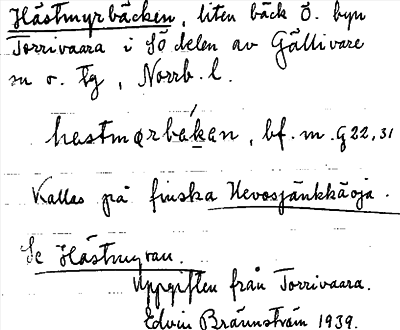 Hästmyrbäcken, liten bäck Ö. byn
Torrivaara i SÖ delen av Gällivare
sn o. tg, Norrb. l.
hastmqrbakan, bf. m. G 22, 31
Kallas på finska Hevosjänkkäoja.
Se Hästmyran.
Uppgiften från Torrivaara.
Edvin Brännström 1939.